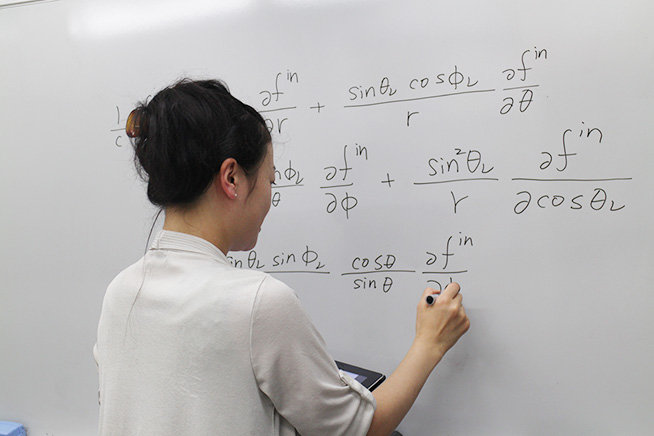 1/c ∂fⁱⁿ/∂r + sinθ_ν cosϕ_ν/r ∂fⁱⁿ/∂θ
nϕ_ν/θ ∂fⁱⁿ/∂ϕ + sin²θ_ν/r ∂fⁱⁿ/∂cosθ_ν
inθ_ν sinϕ_ν cosθ/sinθ ∂fⁱⁿ/∂